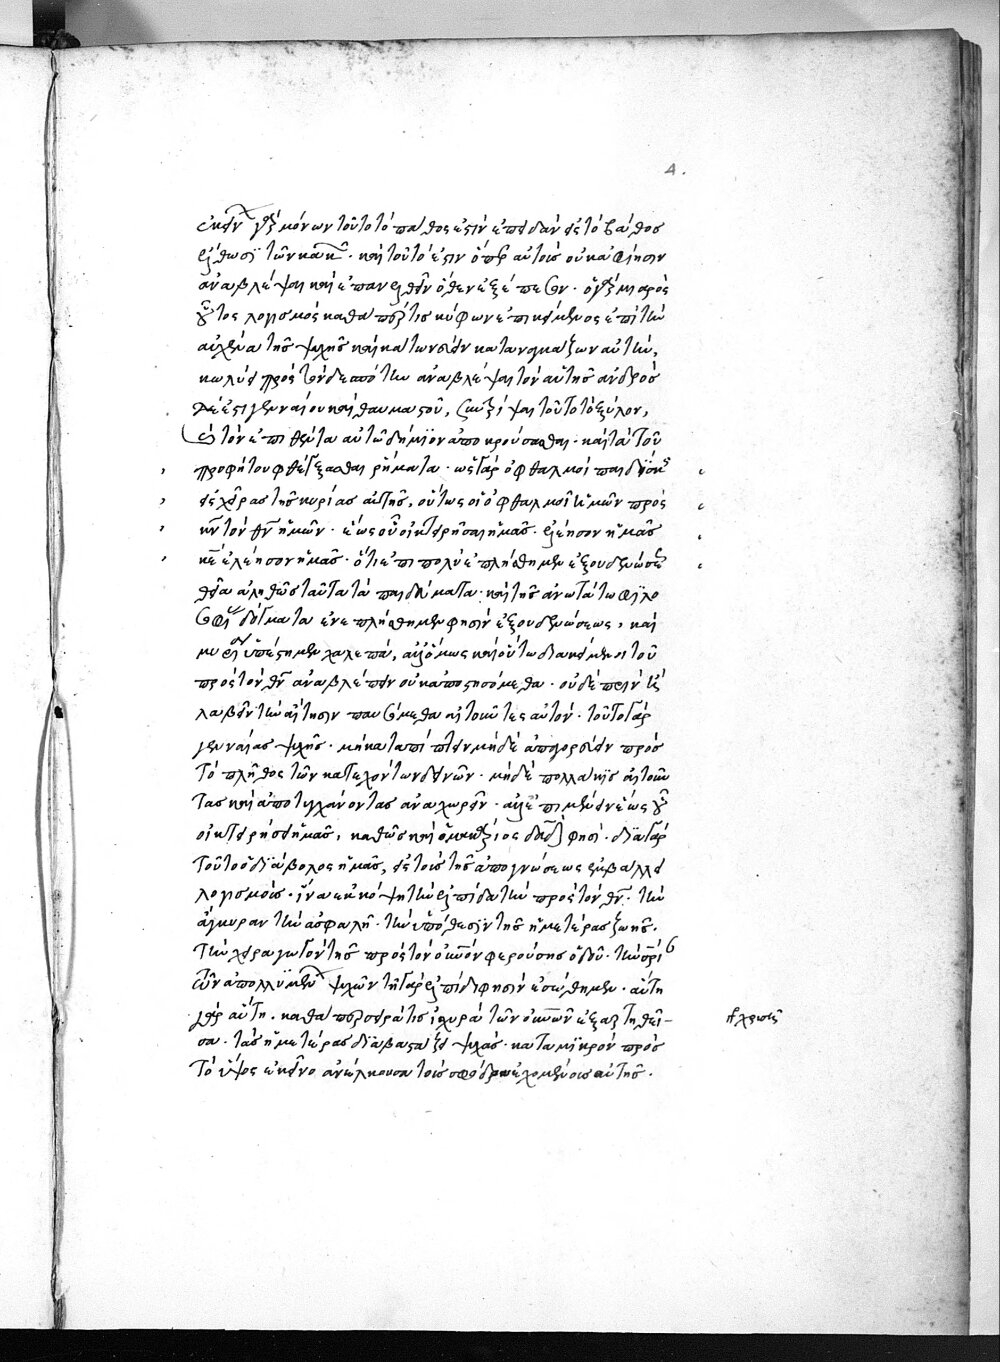 4.
ἐκείνων γὰρ μόνων τοῦτο τὸ πάθος ἐστὶν ἐπειδὰν εἰς τὸ βάθος
ἔλθωσι τῶν κακῶν. καὶ τοῦτό ἐστιν ὅπερ αὐτοὺς οὐκ ἀφίησιν
ἀναβλέψαι καὶ ἐπανελθεῖν ὅθεν ἐξέπεσον. ὁ γὰρ μιαρὸς
οὗτος λογισμὸς καθάπερ τις κύφων ἐπικείμενος ἐπὶ τὸν
αὐχένα τῆς ψυχῆς καὶ κάτω νεύειν καταναγκάζων αὐτὴν,
κωλύει πρὸς τὸν δεσπότην ἀναβλέψαι τὸν αὐτῆς ἀνδρὸς
δέ ἐστι γενναίου καὶ θαυμαστοῦ, συντρίψαι τοῦτο τὸ ξύλον,
καὶ τὸν ἐπιθέντα αὐτῷ δήμιον ἀποκρούσασθαι. καὶ τὰ τοῦ
προφήτου φθέγξασθαι ῥήματα. ὡς γὰρ ὀφθαλμοὶ παιδίσκης
εἰς χεῖρας τῆς κυρίας αὐτῆς, οὕτως οἱ ὀφθαλμοὶ ἡμῶν πρὸς
κν τὸν θν ἡμῶν. ἕως οὗ οἰκτειρῆσαι ἡμᾶς. ἐλέησον ἡμᾶς
κε ἐλέησον ἡμᾶς. ὅτι ἐπιπολὺ ἐπλήσθημεν ἐξουδενώσεως
θεῖα ἀληθῶς ταῦτα τὰ παιδεύματα. καὶ τῆς ἀνωτάτω φιλο
σοφίας δόγματα ἐνεπλήσθημεν φησὶν ἐξουδενώσεως, καὶ
μυρία ὑπέστημεν χαλεπὰ, ἀλλ' ὅμως καὶ οὕτω διακείμενοι τοῦ
πρὸς τὸν θν ἀναβλέπειν οὐκ ἀποστησόμεθα. οὐδὲ πρὶν ἢ
λαβεῖν τὴν αἴτησιν παυσόμεθα αἰτοῦντες αὐτόν. τοῦτο γὰρ
γενναίας ψυχῆς. μὴ καταπίπτειν μηδὲ ἀπαγορεύειν πρὸς
τὸ πλῆθος τῶν κατεχόντων δεινῶν. μηδὲ πολλάκις αἰτοῦν
τας καὶ ἀποτυγχάνοντας ἀναχωρεῖν. ἀλλ' ἐπιμένειν ἕως οὗ
οἰκτειρήσει ἡμᾶς, καθὼς καὶ ὁ μακάριος δαδ φησί. διὰ γὰρ
τοῦτο ὁ διάβολος ἡμᾶς, εἰς τοὺς τῆς ἀπογνώσεως ἐμβάλλει
λογισμοὺς. ἵνα ἐκκόψῃ τὴν ἐλπίδα τὴν πρὸς τὸν θν. τὴν
ἄγκυραν τὴν ἀσφαλῆ. τὴν ὑπόθεσιν τῆς ἡμετέρας ζωῆς.
τὴν χειραγωγὸν τῆς πρὸς τὸν οὐνὸν φερούσης ὁδοῦ. τὴν σρίαν
τῶν ἀπολλυμένων ψυχῶν τῇ γὰρ ἐλπίδι φησὶν ἐσώθημεν. αὕτη
γὰρ αὕτη. καθάπερ σειρά τις ἰσχυρὰ τῶν οὐνῶν ἐξαρτηθεῖ-
σα. τὰς ἡμετέρας διαβαστάζει ψυχάς. κατὰ μικρὸν πρὸς
τὸ ὕψος ἐκεῖνο ἀνέλκουσα τοὺς σφόδρα ἐχομένους αὐτῆς.